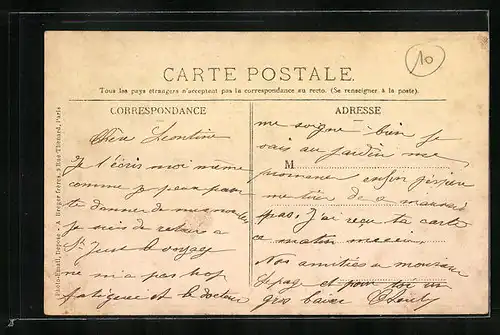 10
CARTE POSTALE.
Tous les pays étrangers n'acceptent pas la correspondance au recto. (Se renseigner à la poste).
CORRESPONDANCE
ADRESSE
Chère Léontine
Je t'écris moi même
comme je peux pour
te donner de mes nouvelles
je suis de retour a
St Just le voyage
ne m'a pas trop
fatiguée et le docteur
me soigne bien je
vais au jardin me
M
promener enfin j'espère
me tirer de ce mauvais
pas. J'ai reçu ta carte
ce matin merci.
Nos amitiés a monsieur
et pour toi un
gros baiser